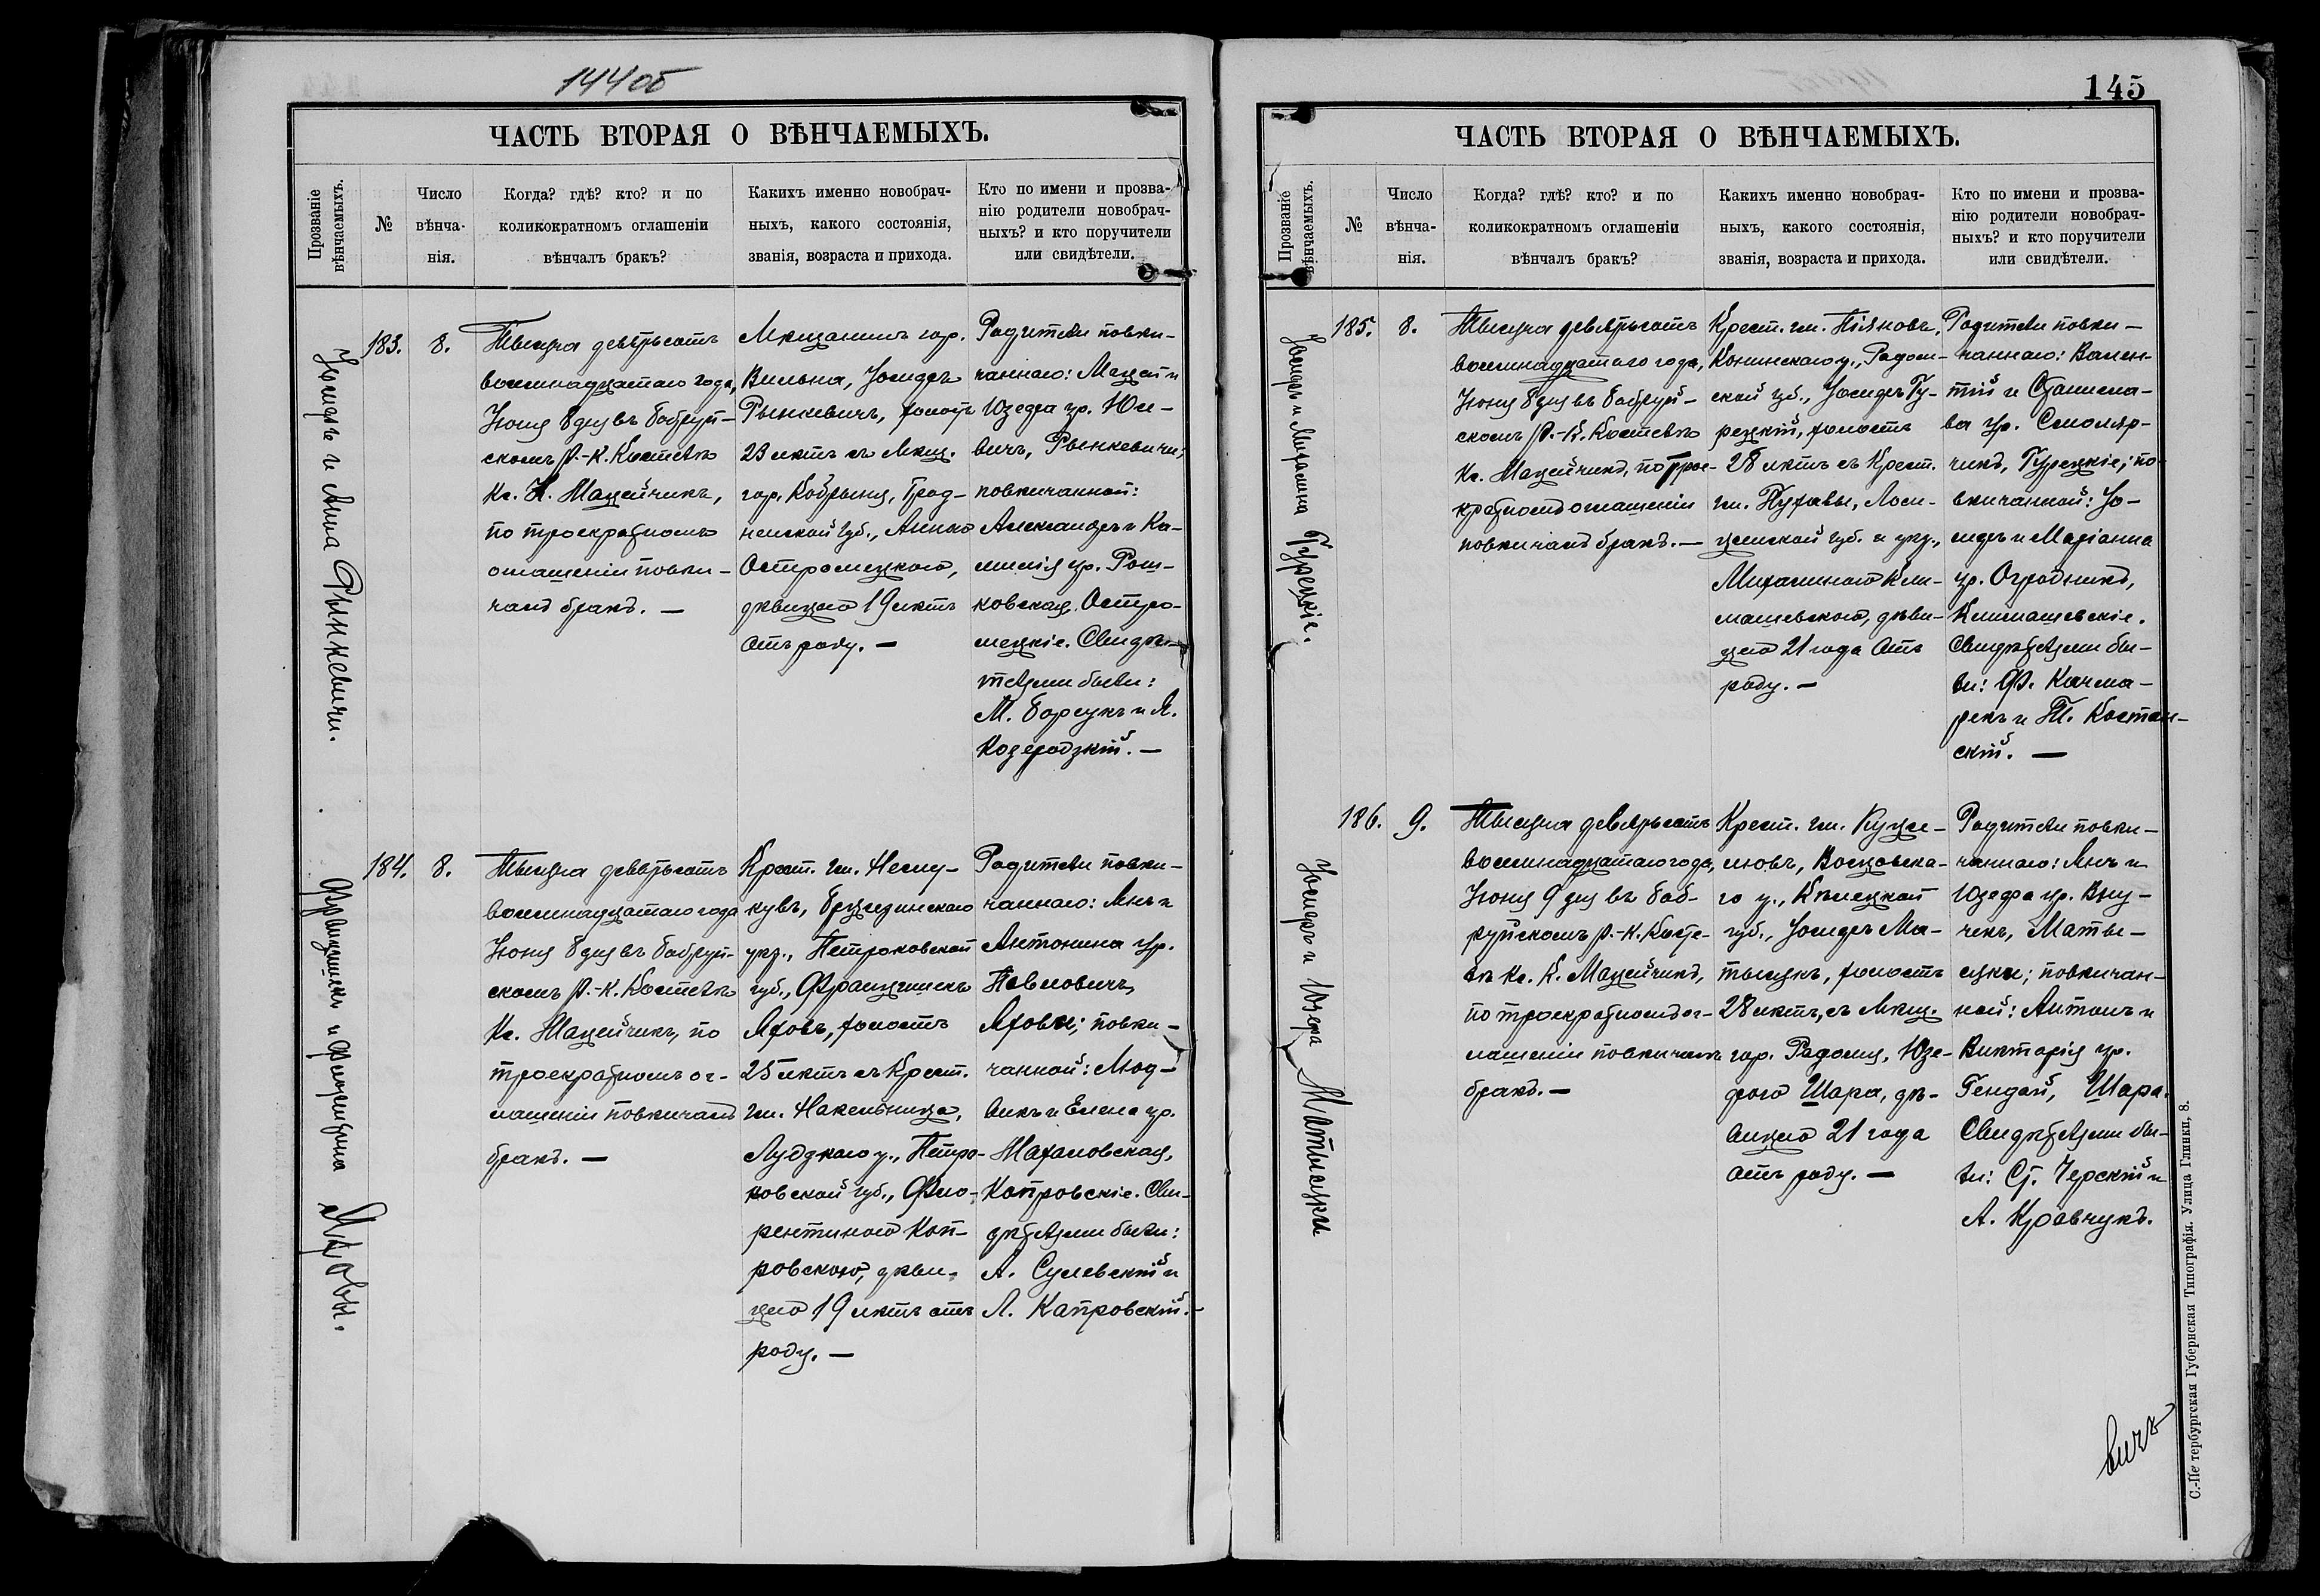 144об
ЧАСТЬ ВТОРАЯ О ВѢНЧАЕМЫХЪ.
Прозваніе
вѣнчаемыхъ.
№
Число
вѣнча-
нія.
Когда? гдѣ? кто? и по
коликократномъ оглашеніи
вѣнчалъ бракъ?
Какихъ именно новобрач-
ныхъ, какого состоянія,
званія, возраста и прихода.
Кто по имени и прозва-
нію родители новобрач-
ныхъ? и кто поручители
или свидѣтели.
Іосифъ и Анна Рынкевичи.
183.
8.
Тысяча девятьсотъ
восемнадцатаго года,
Іюня 8 дня въ Бобруй-
скомъ Р.-К. Костелѣ
Кс. К. Мацейчикъ,
по троекратномъ
оглашеніи повѣн-
чалъ бракъ. —
Мѣщанинъ гор.
Вильна, Іосифъ
Рынкевичъ, холостъ
23 лѣтъ съ Мѣщ.
гор. Кобрына, Грод-
ненской губ., Анною
Остромецкою,
дѣвицею 19 лѣтъ
отъ роду. —
Родители повѣн-
чаннаго: Мацей и
Юзефа ур. Юсе-
вичъ, Рынкевичи;
повѣнчанной:
Александръ и Ка-
милія ур. Рош-
ковская, Остро-
мецкіе. Свидѣ-
телями были:
М. Борсукъ и Я.
Козеродзкій. —
Францишекъ и Флорентина Яховы.
184.
8.
Тысяча девятьсотъ
восемнадцатаго года
Іюня 8 дня въ Бобруй-
скомъ Р.-К. Костелѣ
Кс. Мацейчикъ, по
троекратномъ ог-
лашеніи повѣнчалъ
бракъ. —
Крест. гм.
кувъ, Брезинскаго
уѣз., Петроковской
губ., Францишекъ
Яховъ, холостъ
25 лѣтъ съ Крест.
гм. Накельница,
Лодзкаго у., Петро-
ковской губ., Фло-
рентиною Коп-
ровскою, дѣви-
цею 19 лѣтъ отъ
роду. —
Родители повѣн-
чаннаго: Янъ и
Антонина ур.
Павловичъ,
Яховы; повѣн-
чанной: Люд-
викъ и Елена ур.
Махаловская,
Копровскіе. Сви-
дѣтелями были:
А. Сулевскій и
Л. Капровскій. —
145
ЧАСТЬ ВТОРАЯ О ВѢНЧАЕМЫХЪ.
Прозваніе
вѣнчаемыхъ.
№
Число
вѣнча-
нія.
Когда? гдѣ? кто? и по
коликократномъ оглашеніи
вѣнчалъ бракъ?
Какихъ именно новобрач-
ныхъ, какого состоянія,
званія, возраста и прихода.
Кто по имени и прозва-
нію родители новобрач-
ныхъ? и кто поручители
или свидѣтели.
Іосифъ и Михалина Гурецкіе.
185.
8.
Тысяча девятьсотъ
восемнадцатаго года,
Іюня 8 дня въ Бобруй-
скомъ Р.-К. Костелѣ
Кс. Мацейчикъ, по трое-
кратномъ оглашеніи
повѣнчалъ бракъ. —
Крест. гм. Піяновъ,
Конинскаго у., Радом-
ской губ., Іосифъ Гу-
рецкій, холостъ
28 лѣтъ съ Крест.
гм. Пухавы, Лом-
жинской губ. и уѣз.,
Михалиною Кли-
машевскою, дѣви-
цею 21 года отъ
роду. —
Родители повѣн-
чаннаго: Вален-
тій и Станисла-
ва ур. Смоляр-
чикъ, Гурецкіе; по-
вѣнчанной: Іо-
сифъ и Маріанна
ур. Огродникъ,
Климашевскіе.
Свидѣтелями бы-
ли: Ф. Качма-
рекъ и Т. Костан-
скій. —
Іосифъ и Юзефа Матысяки
186.
9.
Тысяча девятьсотъ
восемнадцатаго года,
Іюня 9 дня въ Боб-
руйскомъ Р.-К. Косте-
лѣ Кс. К. Мацейчикъ,
по троекратномъ ог-
лашеніи повѣнчалъ
бракъ. —
Крест. гм.
Влощовска-
го у., Кѣлецкой
губ., Іосифъ Ма-
тысякъ, холостъ
28 лѣтъ, съ Мѣщ.
гор. Радомя, Юзе-
фою Шара, дѣ-
вицею 21 года
отъ роду. —
Родители повѣн-
чаннаго: Янъ и
Юзефа ур. Вну-
чекъ, Маты-
сяки; повѣнчан-
ной: Антонъ и
Викторія ур.
Гендай, Шара.
Свидѣтелями бы-
ли: Ст. Черскій и
А. Кравчукъ.
вичъ
С.-Петербургская Губернская Типографія. Улица Глинки, 8.